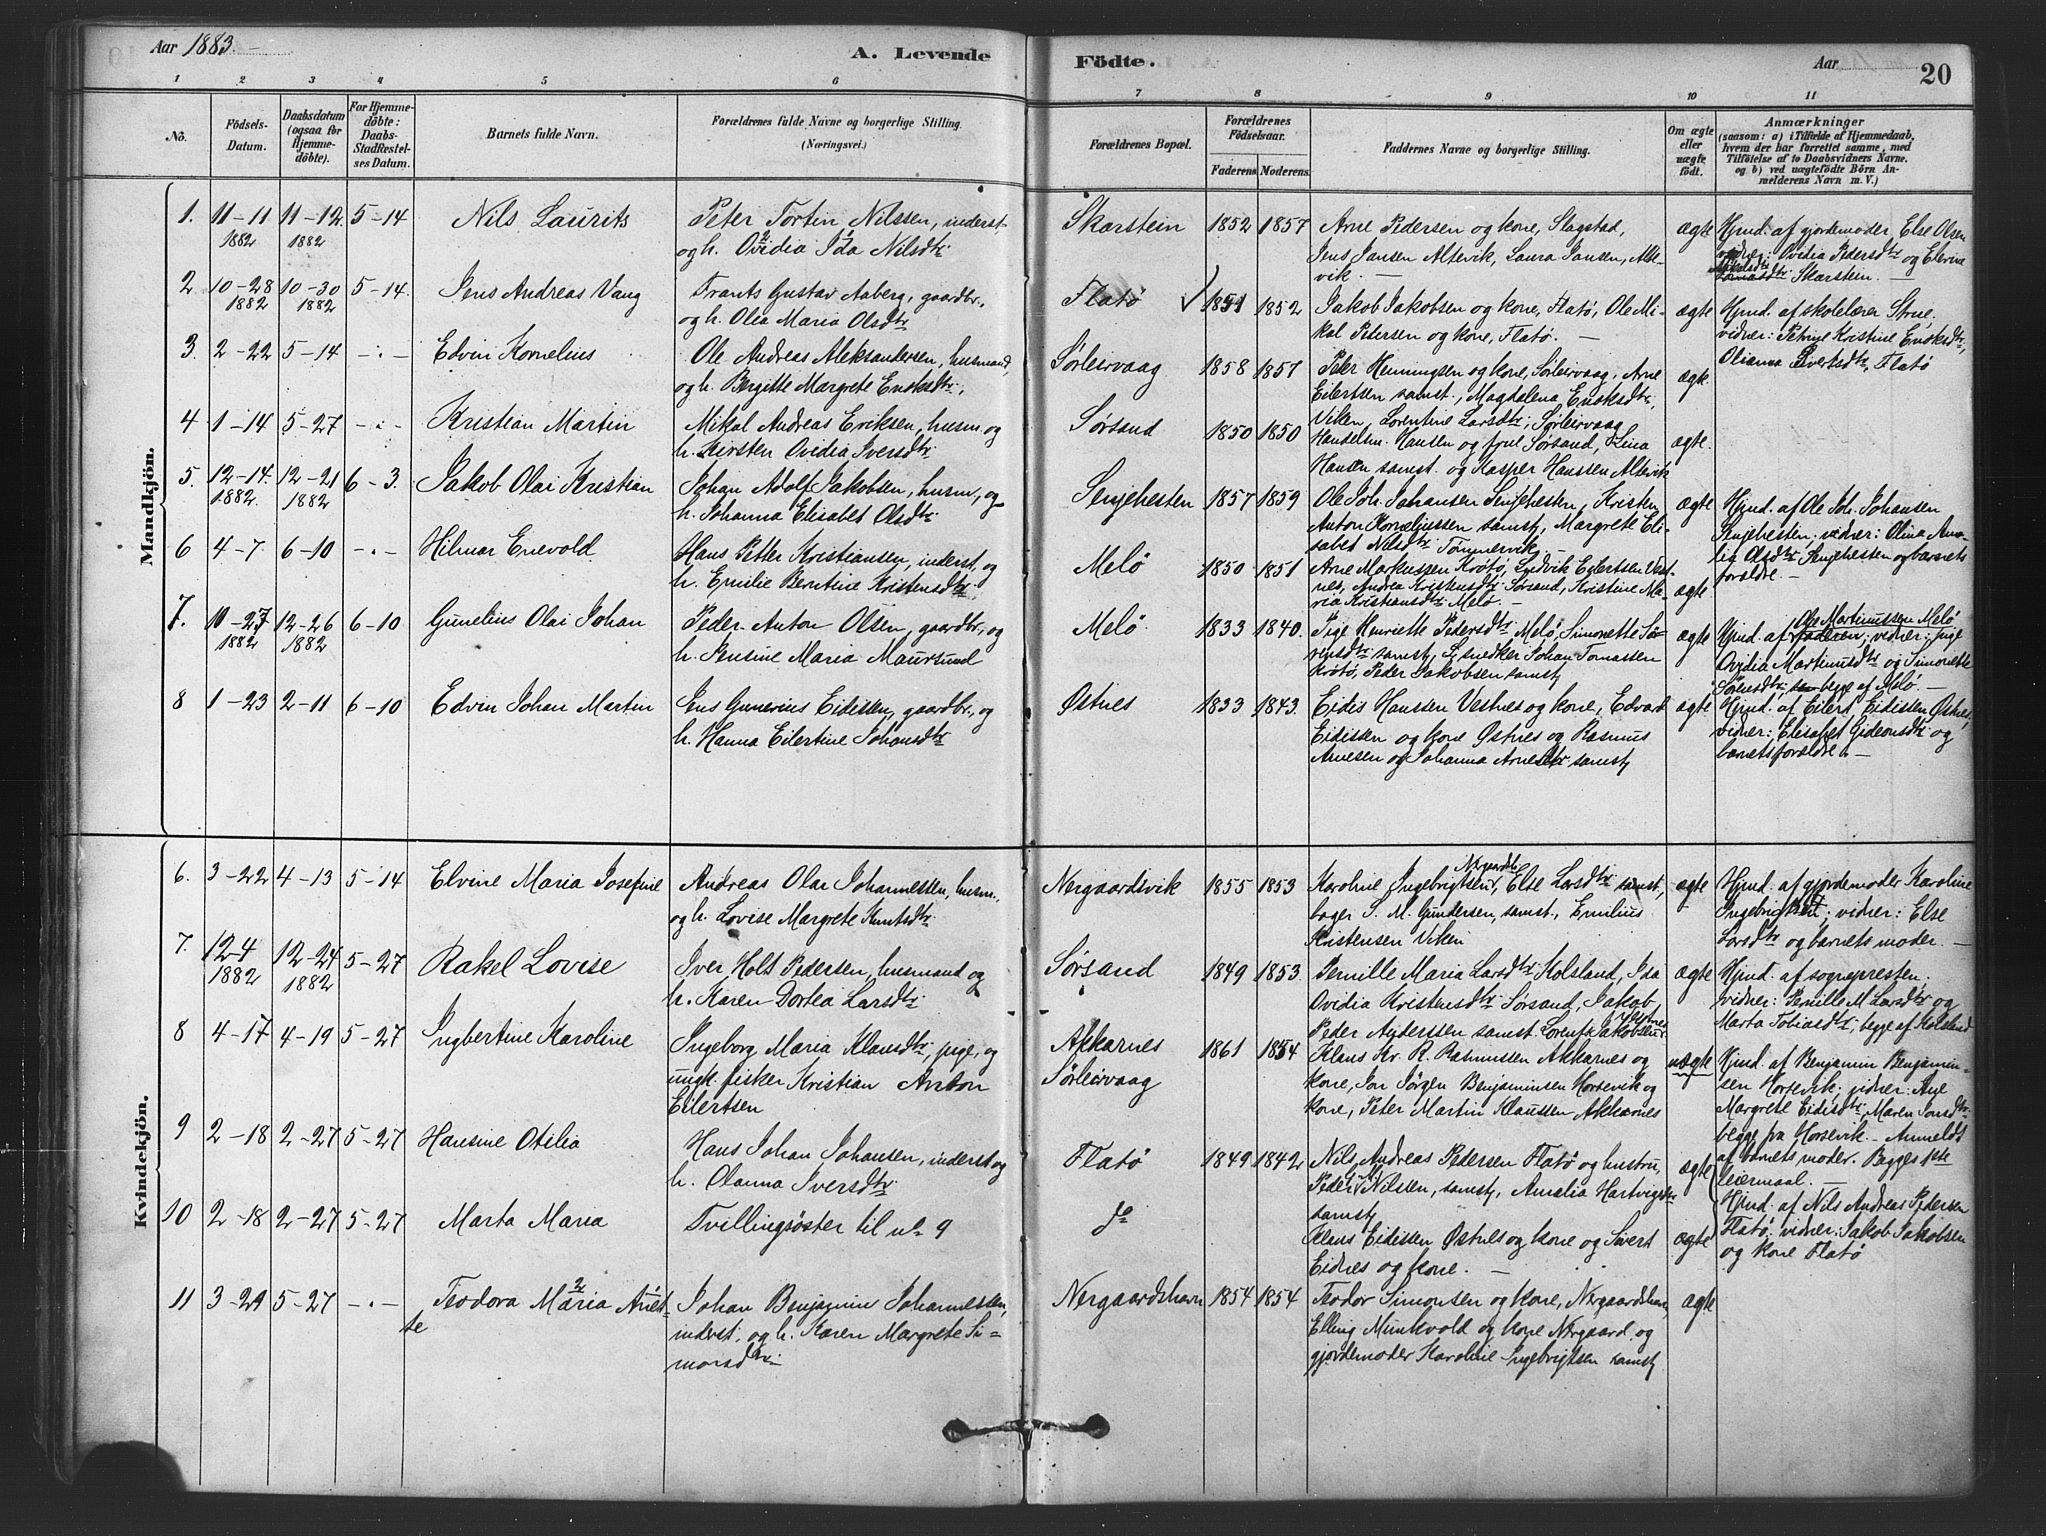 Aar 1883.
A. Levende
Födte.
Aar
20
1 2 3 4 5 6 7 8 9 10 11
No.
Födsels-
Datum.
Daabsdatum
(ogsaa for
Hjemme-
döbte).
For Hjemme-
döbte:
Daabs-
Stadfæstel-
ses Datum.
Barnets fulde Navn.
Forældrenes fulde Navne og borgerlige Stilling.
(Næringsvei.)
Forældrenes Bopæl.
Forældrenes
Födselsaar.
Faderens
Moderens.
Faddernes Navne og borgerlige Stilling.
Om ægte
eller
uægte
födt.
Anmærkninger
(saasom: a) i Tilfælde af Hjemmedaab,
hvem der har forrettet samme, med
Tilföielse af to Daabsvidners Navne,
og b) ved uægtefödte Börn An-
melderens Navn m. V.)
Mandkjön.
1. 11-11 1882 11-12 1882 5-14 Nils Laurits
Peter Tortin Nilssen, inderst
og h. Ovidia Ida Nilsdtr
Skarstein 1852 1857
Arne Pedersen og kone, Slagstad,
Jens Jansen Altevik, Laura Jansen, Alte-
vik. —
ægte
Hjmd. af gjordemoder Else Olsen
vidner: Ovidia Pedersdtr og Elevine
Skarstein. —
2 10-28 1882 10-30 1882 5-14. Jens Andreas Vang
Frants Gustav Aaberg, gaardbr.,
og h. Olea Maria Olsdtr
Flatø 1851 1852
Jakob Jakobsen og kone, Flatø, Ole Mi-
kal Petersen og kone, Flatø. —
ægte
Hjmd. af skolelærer Strue.
vidner: Petrine Kristine Enoksdtr,
Olianna Sivertsdtr, Flatø
3. 2-22 5-14 -„- Edvin Kornelius
Ole Andreas Aleksandersen, husmand,
og h. Bergitte Margrete Enoksdtr.
Sørleirvaag 1858 1857
Peter Henningsen og kone, Sørleirvaag, Arne
Eilertsen samst., Magdalena Enoksdtr,
Viken, Lorentine Larsdtr, Sørleirvaag
ægte.
4 1-14 5-27 -„- Kristian Martin
Mikal Andreas Eriksen, husm. og
h. Kirsten Ovidia Iversdtr
Sørsand 1850 1850
Handelsm. Hansen og frue Sørsand, Lina
Hansen samst. og Kasper Hanssen Altevik
ægte.
5. 12-14. 1882. 12-21 1882 6-3. Jakob Olai Kristian
Johan Adolf Jakobsen, husm., og
h. Johanna Elisabet Olsdtr
Senjehesten 1857 1859
Ole Joh. Johansen Senjehesten, Kristen
Anton Korneliussen samst, Margrete Eli-
sabet Nilsdtr Tømmervik
ægte
Hjmd. af Ole Joh. Johansen
Senjehesten. vidner: Olina Ama-
lia Olsdtr Senjehesten og barnets
forældre. —
6 4-7 6-10 -„- Hilmar Enevold
Hans Petter Kristiansen, inderst, og
h. Emilie Berntine Kristensdtr.
Melø 1850 1851
Arne Markussen Krøtø, Ludvik Eilertsen Vest-
nes, Andrea Kristensdtr Sørsand, Kristine Ma-
ria Kristiansdtr Melø. —
ægte
7. 10-27 1882 12-26 1882 6-10 Gunelius Olai Johan
Peder Anton Olsen, gaardbr., og
h. Jensine Maria Maursund
Melø 1833 1840.
Pige Henriette Pedersdtr Melø, Simonette Sø-
rensdtr samst, Snedker Johan Tomassen
Krøtø, Peder Jakobsen samst
ægte
Ole Martinussen Melø
Hjmd. af faderen; vidner: pige
Ovidia Martinusdtr og Simonette
Sørensdtr, begge af Melø. —
8 1-23 2-11 6-10 Edvin Johan Martin
Jens Gunerius Eidissen, gaardbr., og
h. Hanna Eilertine Johansdtr
Østnes 1833 1843.
Eidis Hanssen Vestnes og kone, Edvard
Eidissen og kone Østnes og Rasmus
Arnesen og Johanna Arnesdtr samst
ægte
Hjmd. af Eilert Eidissen Østnes,
vidner: Elisabet Gideonsdtr og
barnets forældre. —
Kvindekjön.
6. 3-22 4-13 5-14 Elvine Maria Josefine
Andreas Olai Johannessen, husm.,
og h. Lovise Margrete Knutsdtr
Nergaardsvik 1855 1853
Karoline Ingebrigtsen, Else Larsdtr samst,
bager S. M. Gundersen, samst., Emilius
Kristensen Viken
ægte
Hjmd. af gjordemoder Karoline
Ingebrigtsen; vidner: Else
Larsdtr og barnets moder. —
7. 12-4 1882 12-24 1882 5-27 Rakel Lovise
Iver Holt Pedersen, husmand og
h. Karen Dortea Larsdtr
Sørsand 1849 1853.
Pernille Maria Larsdtr Kolsland, Ida
Ovidia Kristensdtr Sørsand, Jakob
Peder Anderssen samst. Lorents Jakobsen
ægte
Hjmd. af sognepresten.
vidner: Pernille M Larsdtr og
Marta Tobiasdtr, begge af Kolsland
8 4-17 4-19 5-27 Ingbertine Karoline
Ingeborg Maria Klausdtr, pige, og
ungk. fisker Kristian Anton
Eilertsen
Akkarnes
Sørleirvaag
1861 1854
Klaus Kr. R. Rasmussen Akkarnes og
kone, Jon Jørgen Benjaminsen Horsevik og
kone, Peter Martin Klaussen Akkarnes
uægte
Hjmd. af Benjamin Benjamin-
sen Horsevik; vidner: Ane
Margrete Eidisdtr, Maren Jonsdtr
begge fra Horsevik. — Anmeldt
af barnets moder. Begges 1ste
leiermaal. —
9 2-18 2-27 5-27 Hansine Otilia
Hans Johan Johansen, inderst og
h. Olanna Iversdtr
Flatø 1849 1842
Nils Andreas Pedersen Flatø og hustru,
Peder Nilssen, samst, Amalia Hartvigsen
samst
ægte
Hjmd. af Nils Andreas Pedersen
Flatø; vidner: Jakob Jakobsen
og kone Flatø
10 2-18 2-27 5-27 Marta Maria
Tvillingsøster til no 9
do
Klaus Eidissen Østnes og kone og Sivert
Eidnes og kone. —
ægte
11 3-29 5-27 -„- Teodora Maria Anet-
te
Johan Benjamin Johannessen,
inderst, og h. Karen Margrete Si-
monsdtr.
Nergaardshavn 1854 1854
Teodor Simonsen og kone, Nergaardshavn,
Elling Munkvold og kone Nergaard, og
gjordemoder Karoline Ingebrigtsen samst
ægte